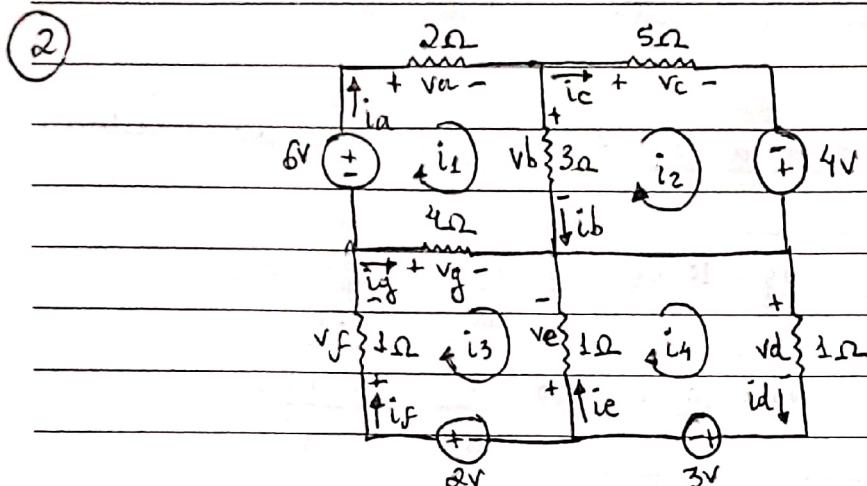 2
2Ω 5Ω
+ va - ic + vc -
ia +
6v + - i1 vb 3Ω i2 - + 4v
4Ω - ib
ig + vg - - +
- vf 1Ω i3 ve 1Ω i4 vd 1Ω
+ if + ie id -
+ - - +
2v 3v